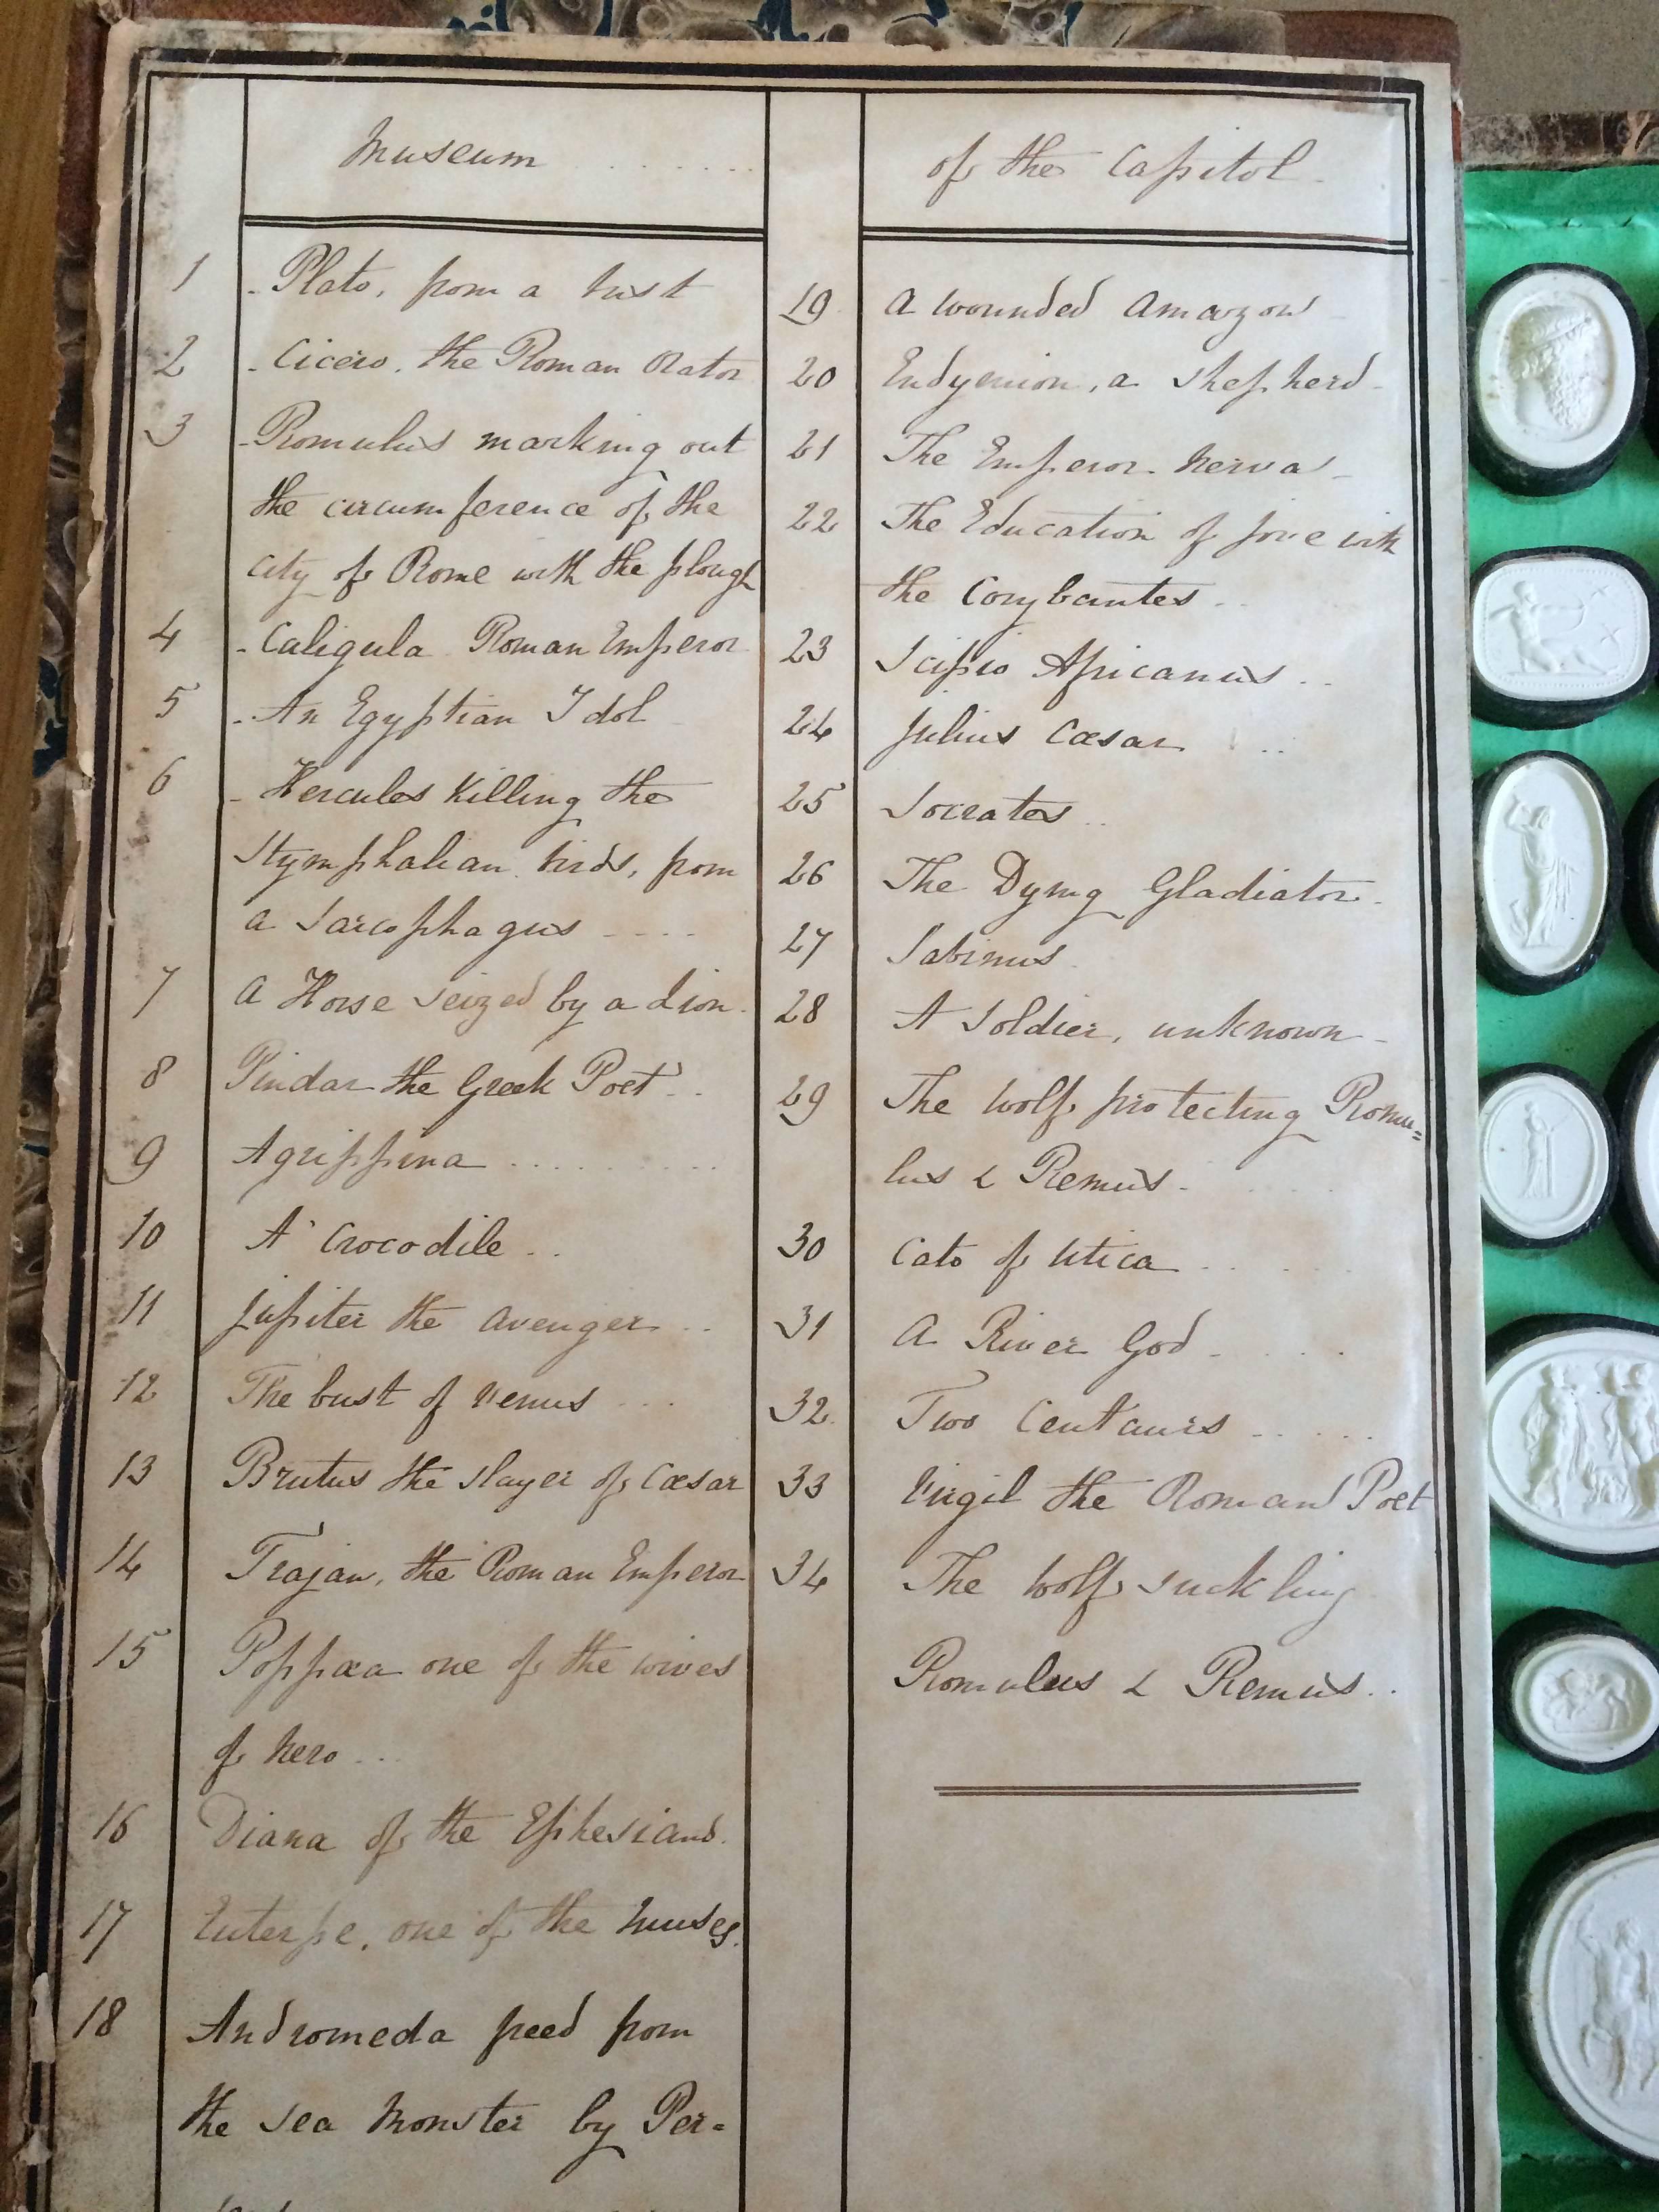 Museum . . . . . . .
of the Capitol.
1 Plato, from a bust
2 Cicero, the Roman Orator
3 Romulus marking out
the circumference of the
city of Rome with the plough
4 Caligula Roman Emperor
5 An Egyptian Idol
6 Hercules Killing the
Stymphalian birds, from
a Sarcophagus - - - -
7 A Horse seized by a Lion.
8 Pindar the Greek Poet . .
9 Agrippina . . . . . . . . .
10 A Crocodile . .
11 Jupiter the avenger . .
12 The bust of Venus . . .
13 Brutus the slayer of Cæsar
14 Trajan, the Roman Emperor
15 Poppæa one of the wives
of Nero . . .
16 Diana of the Ephesians.
17 Euterpe, one of the Muses.
18 Andromeda freed from
the sea Monster by Per=
19 A wounded Amazon
20 Endymion, a shepherd -
21 The Emperor Nerva -
22 The Education of Jove with
the Corybantes . .
23 Scipio Africanus . .
24 Julius Cæsar . .
25 Socrates . .
26 The Dying Gladiator.
27 Sabinus
28 A Soldier, unknown -
29 The Wolf protecting Romu=
lus & Remus -
30 Cato of Utica . . . .
31 A River God - . . .
32 Two Centaurs . . . . .
33 Virgil the Roman Poet
34 The Wolf suckling
Romulus & Remus . .